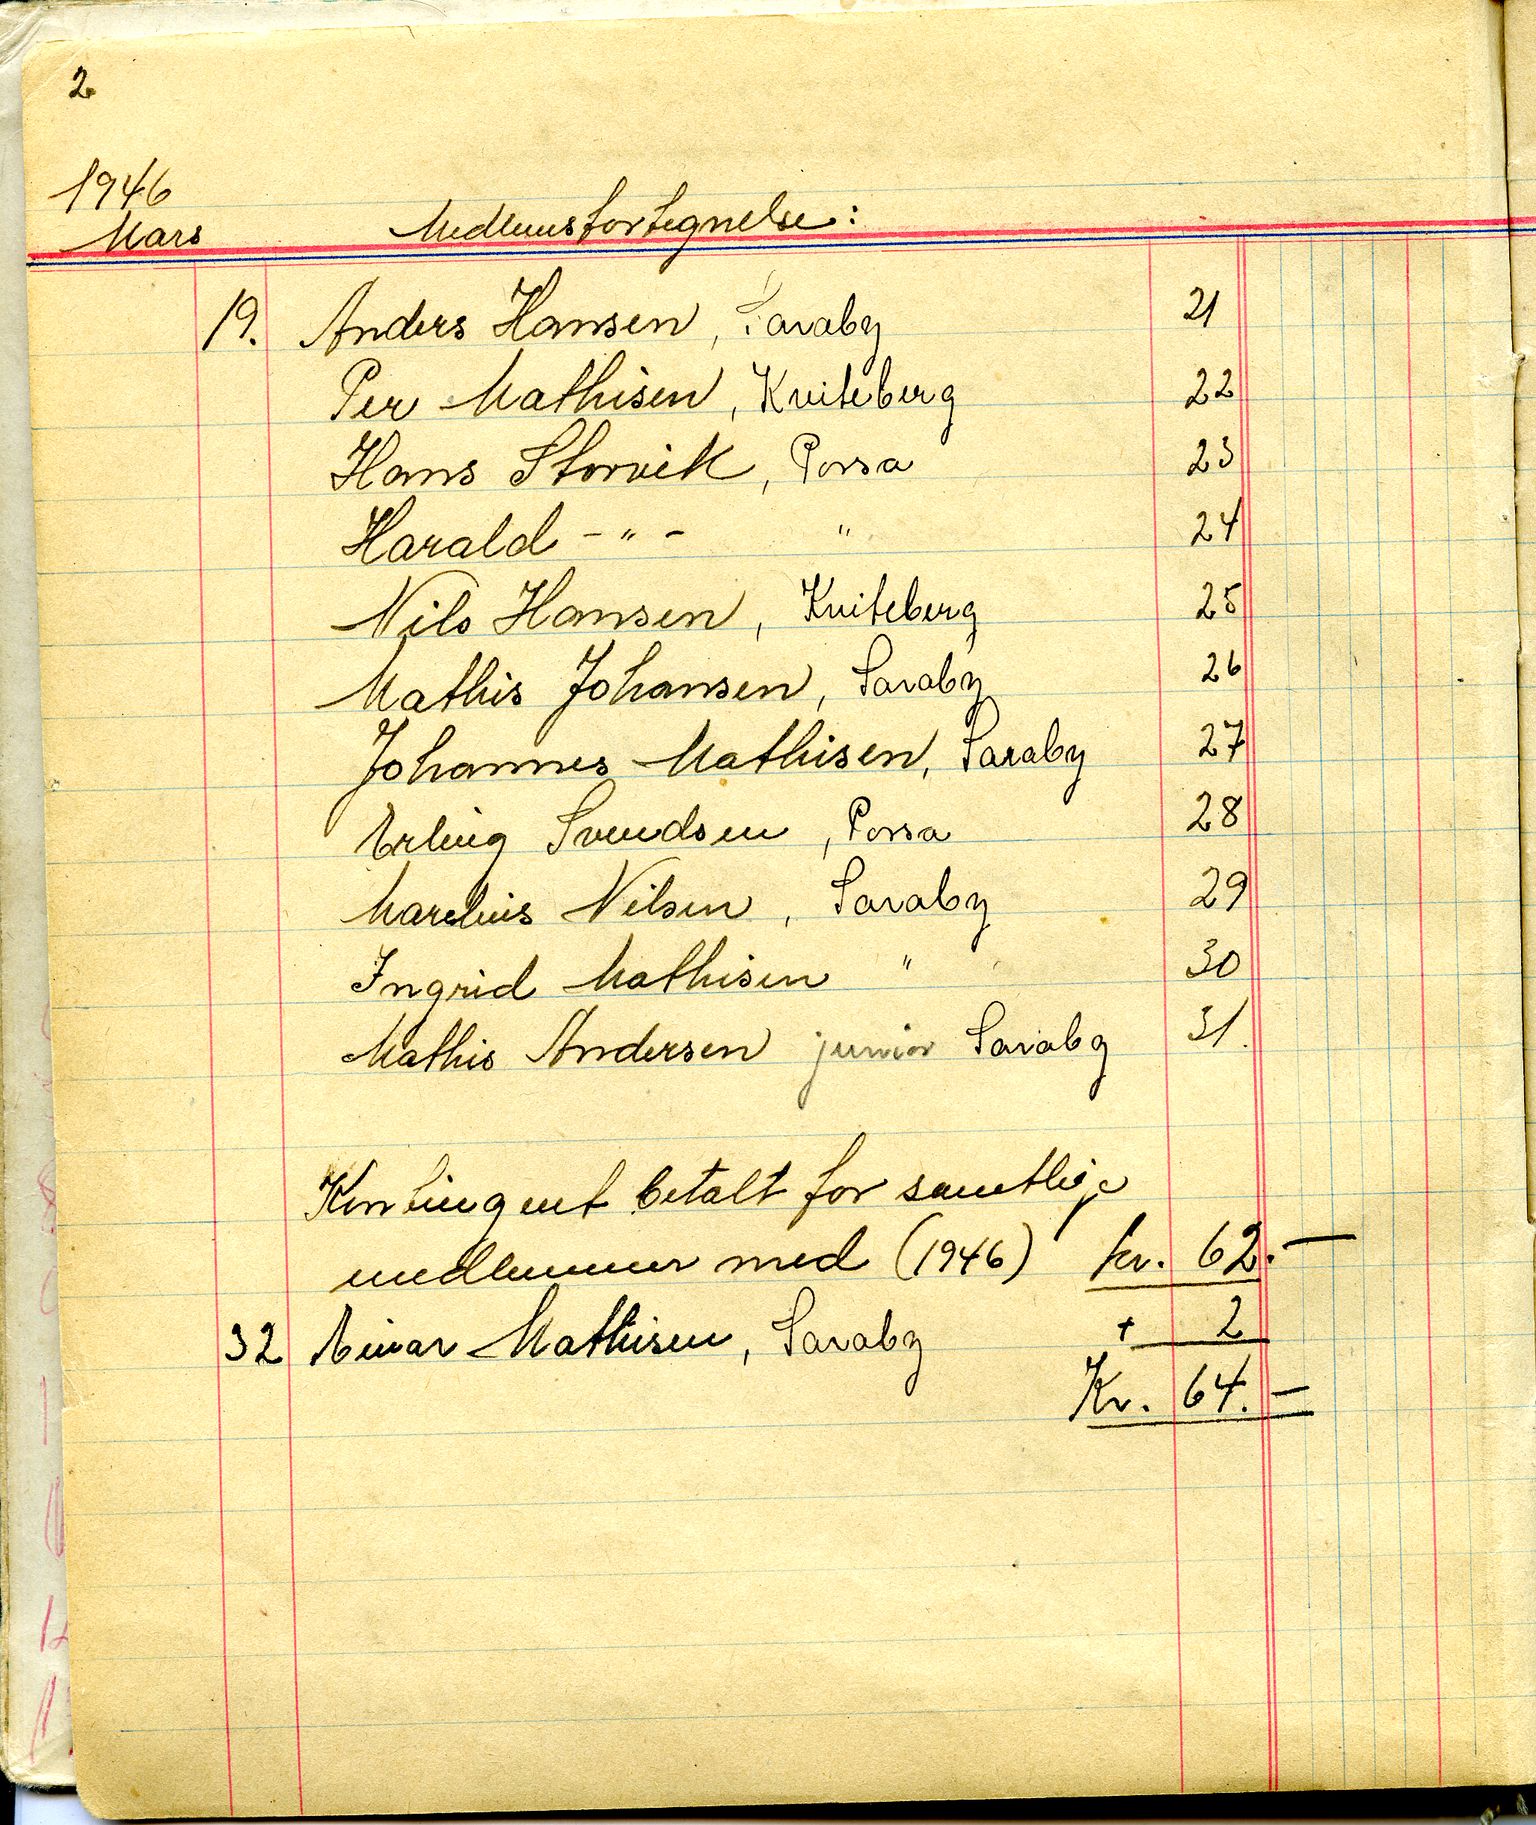 2.
1946
Mars Medlemsfortegnelse:
19. Anders Hansen, Saraby 21
Per Mathisen, Kviteberg 22
Hans Storvik, Porsa 23
Harald -"- " 24
Nils Hansen, Kviteberg 25
Mathis Johansen, Saraby 26
Johannes Mathisen, Saraby 27
Erling Svendsen, Porsa 28
Marelius Nilsen, Saraby 29
Ingrid Mathisen " 30
Mathis Andersen junior Saraby 31.
Kontingent betalt for samtlige
medlemmer med (1946) kr. 62.—
32 Einar Mathisen, Saraby + 2
Kr. 64.—